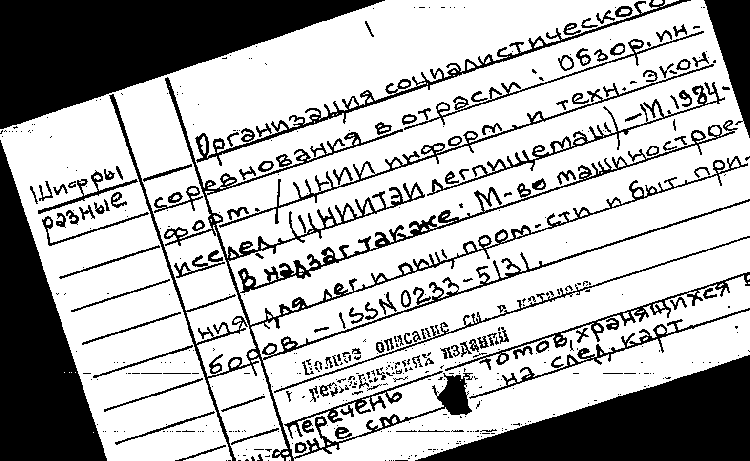 Организация социалистического
соревнования в отрасли : Обзор. ин-
форм. / ЦНИИ информ. и техн.-экон.
исслед. (ЦНИИТЭИлегпищемаш).—М.1984-
В надзаг. также: М-во машинострое-
ния для лег. и пищ. пром-сти и быт. при-
боров. — ISSN 0233-5131.
Шифры
разные
Полное описание см. в каталоге
периодических изданий
Перечень томов, хранящихся в
фонде см. на след. карт.